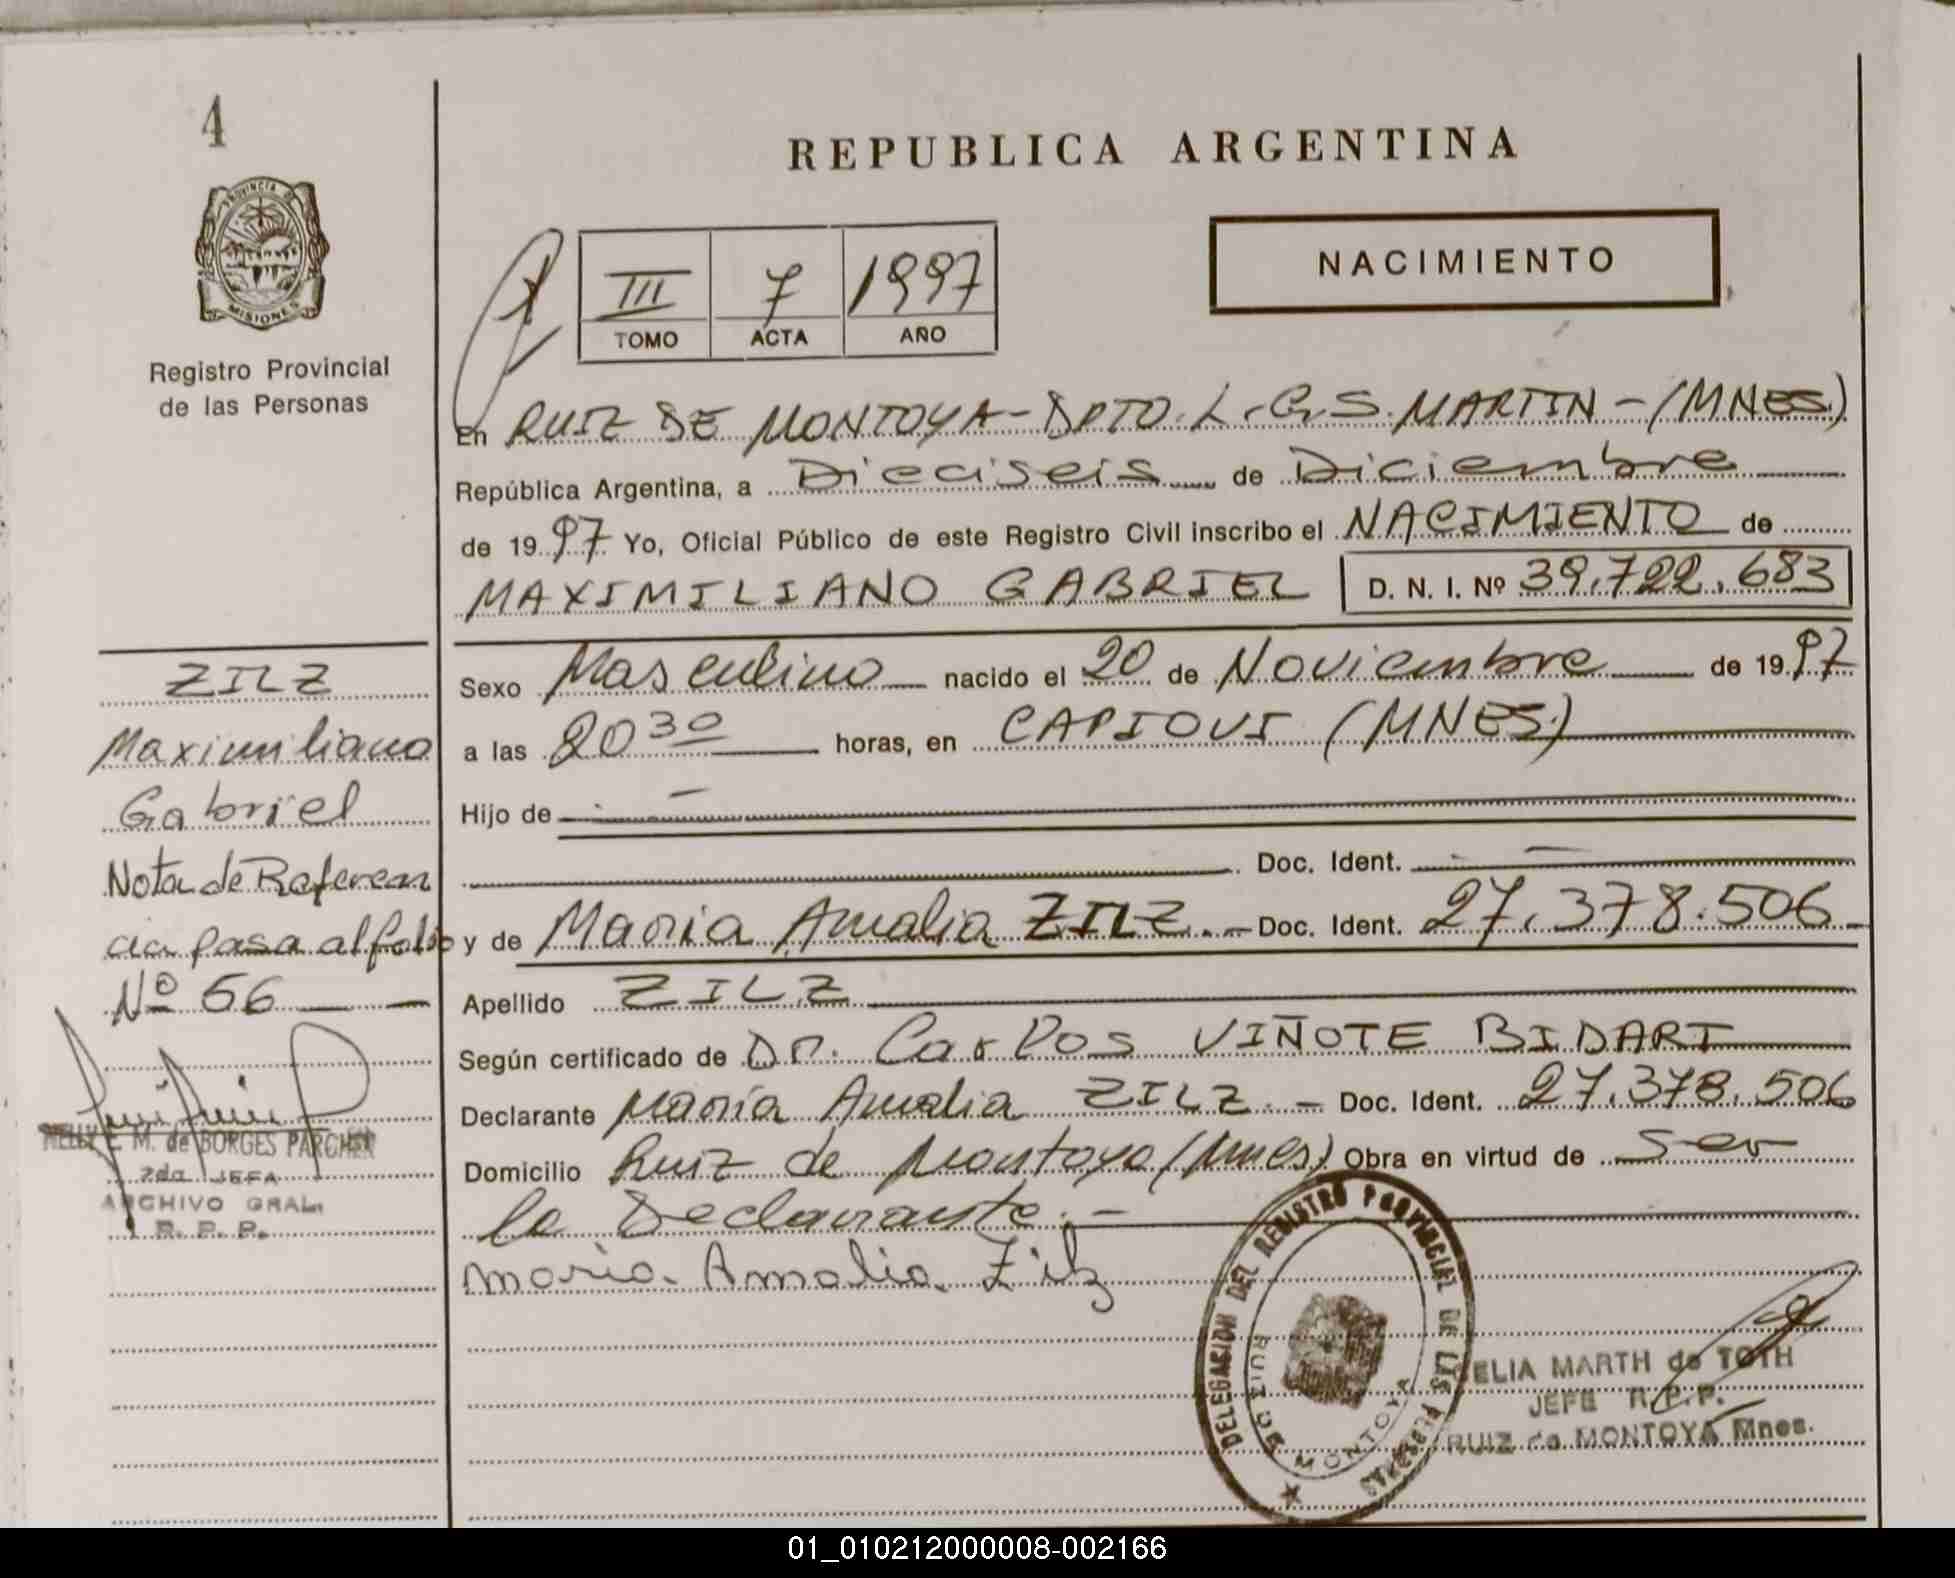 4
REPUBLICA ARGENTINA
PROVINCIA DE
MISIONES
Registro Provincial
de las Personas
III 7 1997
TOMO ACTA AÑO
NACIMIENTO
En RUIZ DE MONTOYA - DPTO. L. G. S. MARTIN - (MNES.)
República Argentina, a Dieciseis de Diciembre
de 1997 Yo, Oficial Público de este Registro Civil inscribo el NACIMIENTO de
MAXIMILIANO GABRIEL D. N. I. Nº 39.722.683
Sexo Masculino nacido el 20 de Noviembre de 1997
a las 20 30 horas, en CAPIOVI (MNES.)
Hijo de . —
Doc. Ident. . —
y de Maria Amalia ZILZ. - Doc. Ident. 27.378.506 -
Apellido ZILZ
Según certificado de Dr. Carlos VIÑOTE BIDART
Declarante Maria Amalia ZILZ. - Doc. Ident. 27.378.506
Domicilio Ruiz de Montoya (Mnes) Obra en virtud de ser
la Declarante. -
Maria Amalia Zilz
ZILZ
Maximiliano
Gabriel
Nota de Referen
cia pasa al folio
Nº 56
NELLY E. M. de BORGES PARCHEN
2da JEFA
ARCHIVO GRAL.
R. P. P.
DELEGACION DEL REGISTRO PROVINCIAL DE LAS PERSONAS
RUIZ DE MONTOYA
CELIA MARTH de TOTH
JEFE R.P.P.
RUIZ de MONTOYA Mnes.
01_010212000008-002166